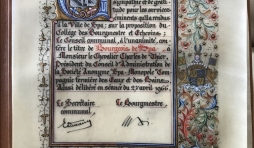 sympathie et de grati-
tude pour les services
éminents qu'il a rendus
à la Ville de Spa, sur la proposition du
Collège des Bourgmestre et Echevins,
le Conseil communal, à l'unanimité, con-
fère le titre de Bourgeois de Spa, à
Monsieur le Chevalier Charles de Thier,
Président du Conseil d'Administration de
la Société Anonyme Spa-Monopole Com-
pagnie fermière des Eaux et des Bains.
Ainsi délibéré en séance du 27 avril 1966.
Le Secrétaire Le Bourgmestre,
communal,